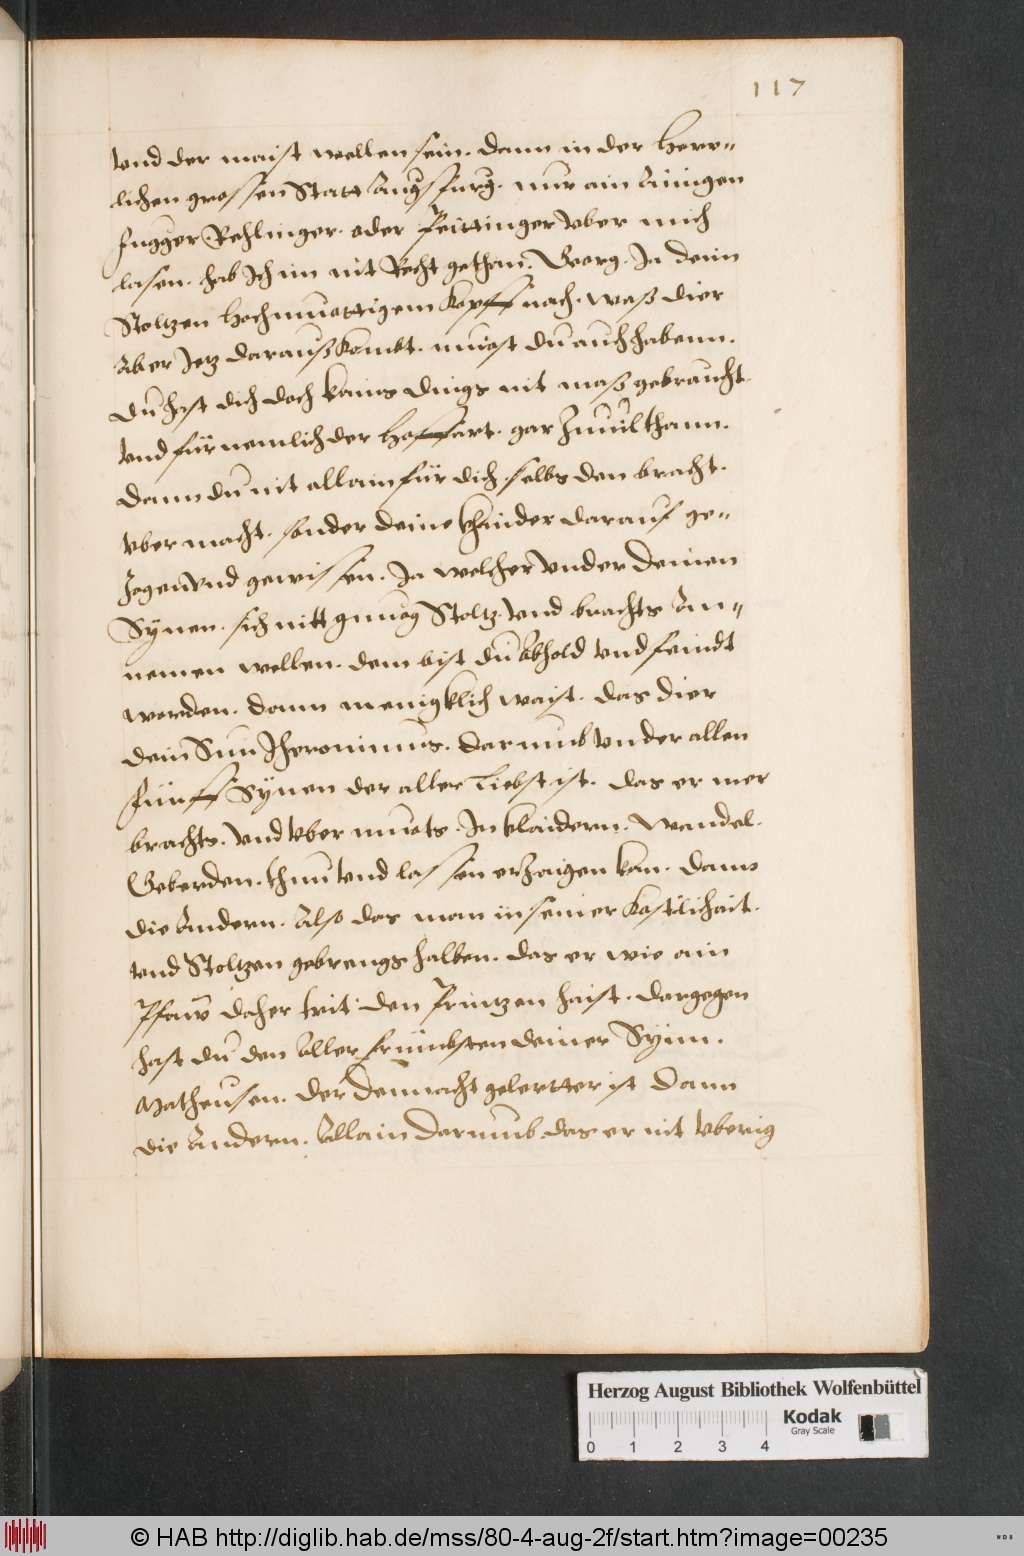 117
Vnd der maist wellen sein. dann in der Herr=
lichen grossen Statt Augsfurg. nur ain Ainigen
Fugger Rehlinger. oder Peittinger Vber mich
lasen. hab Ich im nit Recht gethan. Georg. Ja deim
Stoltzen Hochmüettigem Kopff nach. was dier
Aber Jetz daraus kombt. muost dŭ auch habenn.
dŭ hast dich doch kains dings nit mass gebraucht.
Vnd fürnemlich der Hoffart. gar Zuuil thann.
dann dŭ nit allain für dich selbs den bracht.
Vbermacht. sonder deine Khinder darauf ge=
Zogen Vnd gewissen. Ja welcher Vnder deinen
Sÿnen. sich nitt gnuog Stoltz. Vnd brachts An=
nemen wellen. dem bist dŭ Abhold Vnd feindt
worden. dann menigklich waist. das dier
dein Sun Jheronimus. darumb Vnder allen
fünff Sÿnen der aller liebst ist. das er mer
brachts. Vnd Vbermuots. In klaidern. Wandel.
Geberden. thun Vnd lassen erZaigen kan. dann
die Andern. Also das man in seiner Kostlichait.
Vnd Stoltzen gebrengs halben. das er wie ain
Pfaw daher trit. den Printzen haist. dargegen
hast dŭ den Aller frümbsten deiner Sÿnn.
Matheusen. der dennacht gelertter ist dann
die Andern. Allain darumb das er nit Vberig
Herzog August Bibliothek Wolfenbüttel
Kodak
Gray Scale
0 1 2 3 4
© HAB http://diglib.hab.de/mss/80-4-aug-2f/start.htm?image=00235